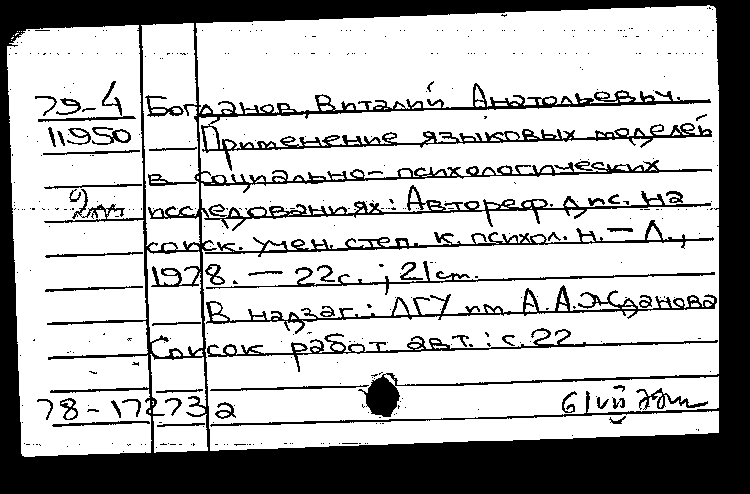 79-4 Богданов, Виталий Анатольевич.
11950 Применение языковых моделей
в социально-психологических
2 исследованиях: Автореф. дис. на
соиск. учен. степ. к. психол. н. — Л.,
1978. — 22с. ; 21 см.
В надзаг.: ЛГУ им. А. А. Жданова
Список работ авт.: с. 22.
78-17273 а